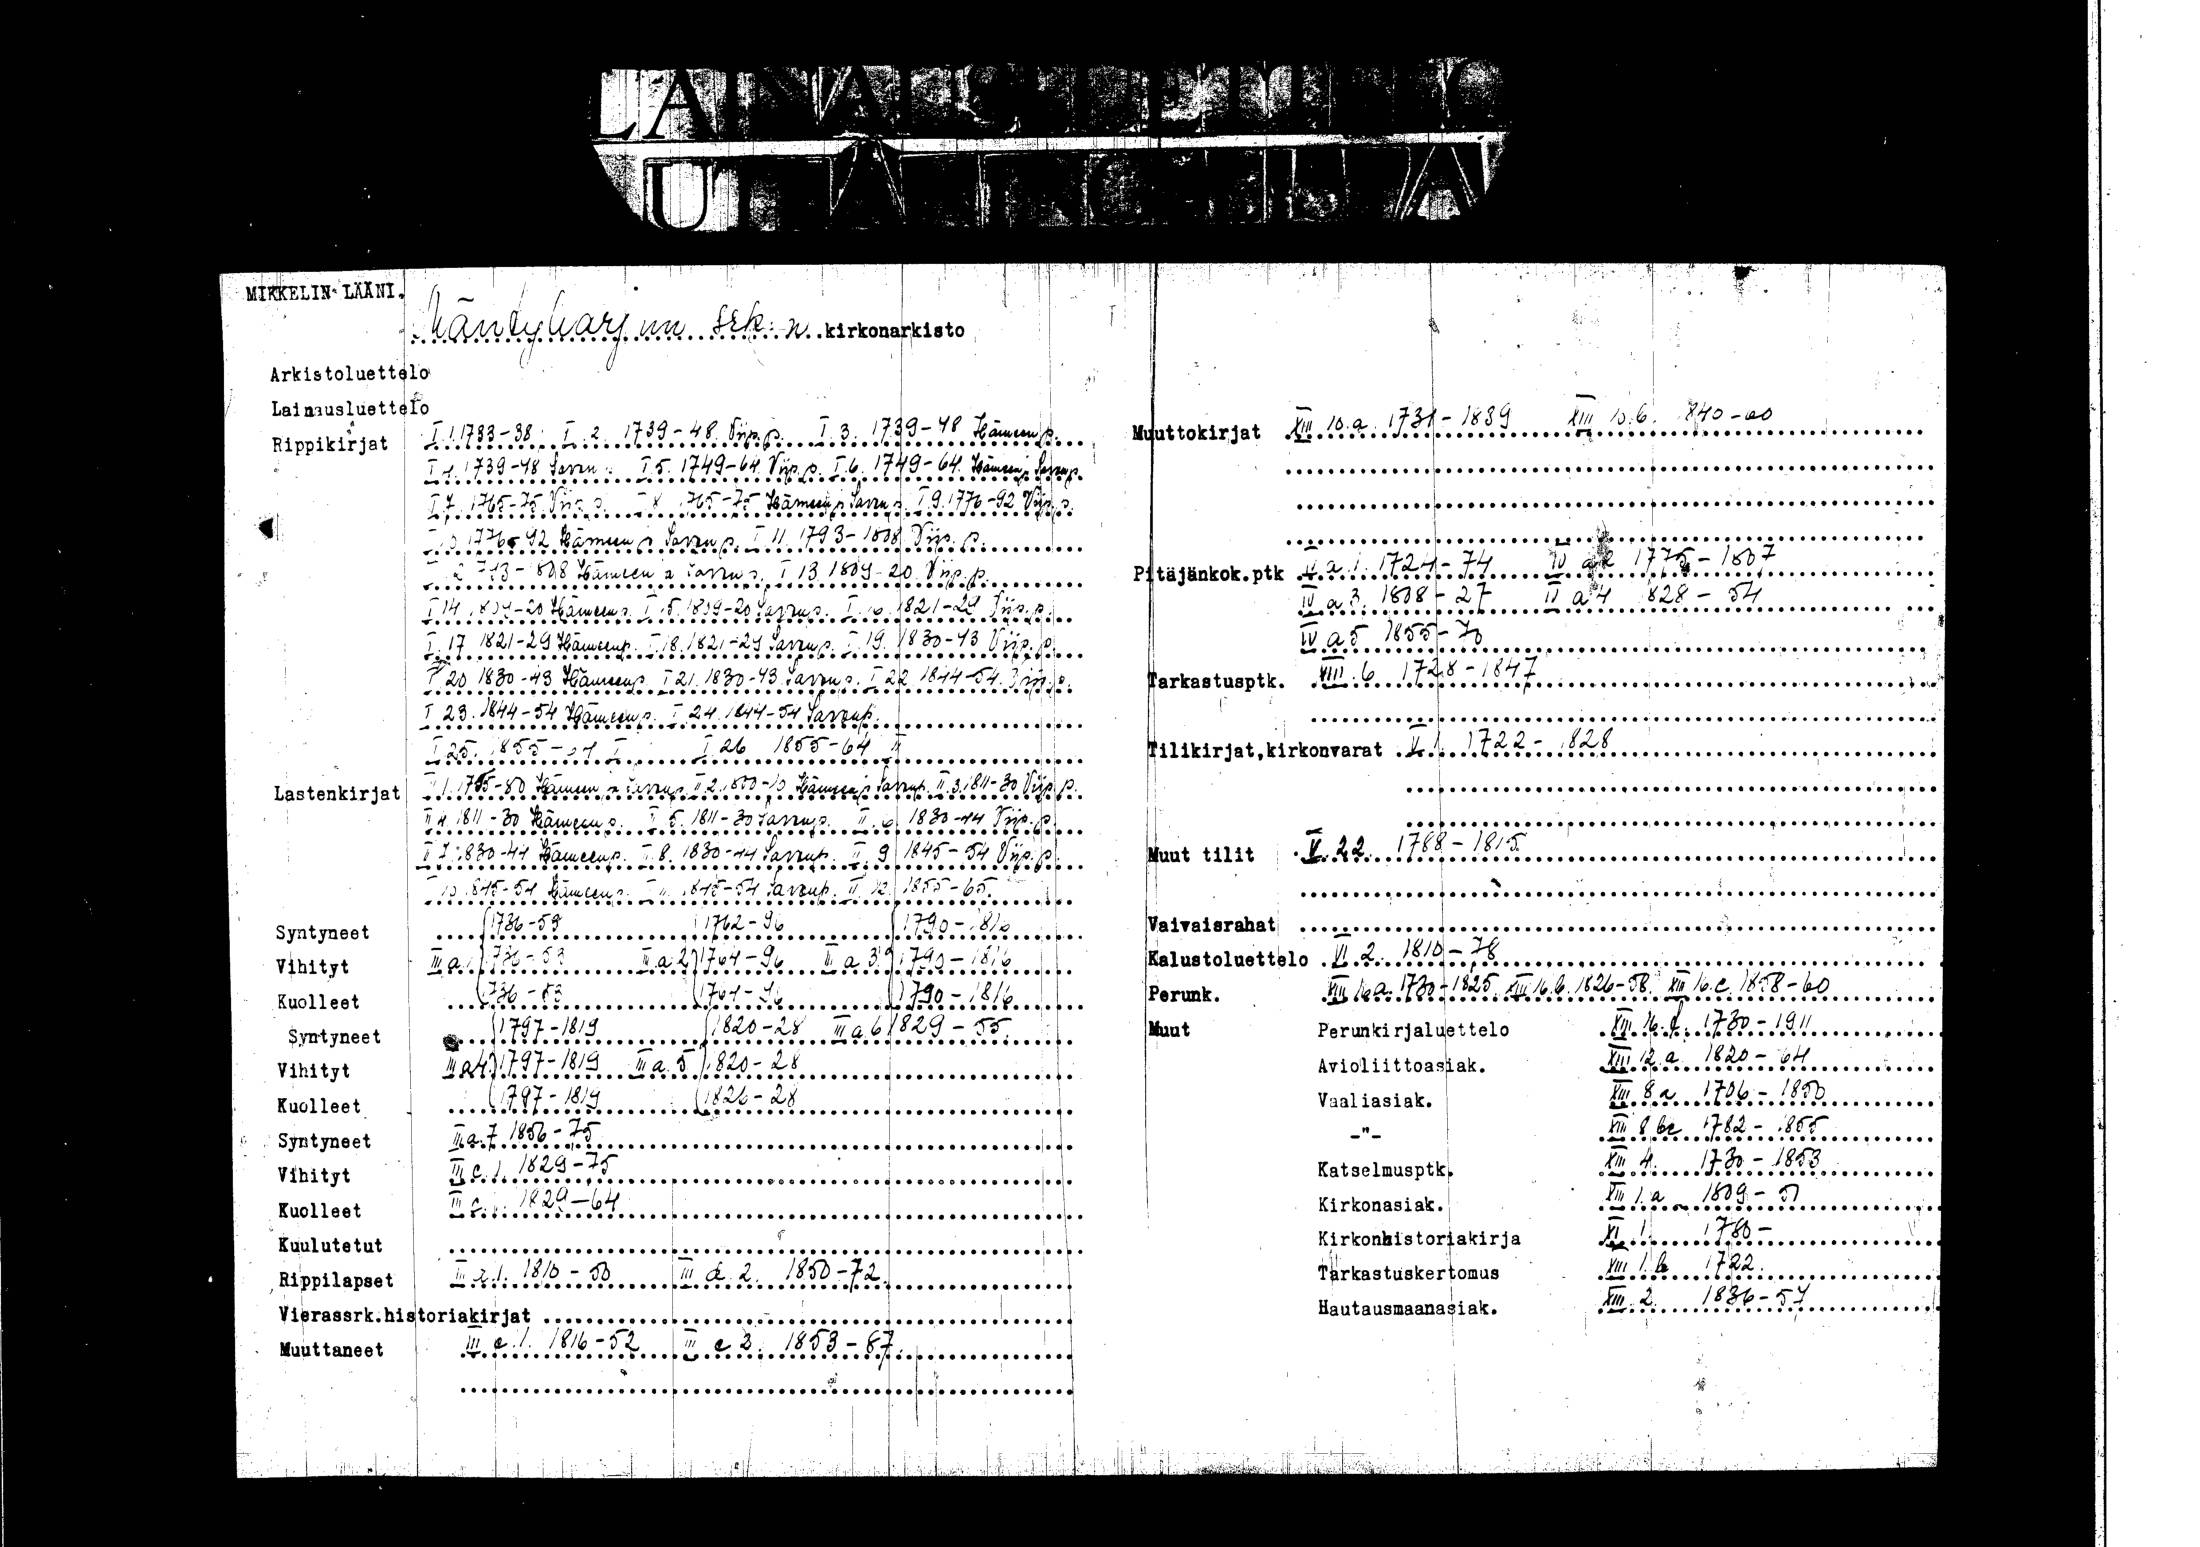 MIKKELIN LÄÄNI.
Mäntyharjun srk:n kirkonarkisto
Arkistoluettelo
Lainausluettelo
Rippikirjat I.1.1733-38. I.2. 1739-48. Viip.p. I.3. 1739-48 Hämeen p.
1739-48 Savon I.5. 1749-64. Viip.p. I.6. 1749-64. Hämeen ja Savon p.
I.7. 1765-75 Viip.p. I 8 1765-75 Hämeen ja Savon p. I.9. 1776-92 Viip.p.
1776-92 Hämeen ja Savon p. I 11. 1793-1808 Viip.p.
Hämeen ja Savon p. I 13 1809-20. Viip.p.
I 14 1809-20 Hämeen p. I.15. 1809-20 Savon p. I.16. 1821-29 Viip.p.
I.17 1821-29 Hämeen p. I.18. 1821-29 Savon p. I.19. 1830-43 Viip.p.
I 20 1830-43 Hämeen p. I 21. 1830-43. Savon p. I 22 1844-54. Viip.p.
I 23. 1844-54 Hämeen p. I 24. 1844-54 Savon p.
I 25. 1855-64 I I 26 1855-64 II
Lastenkirjat Hämeen ja Savon p. Hämeen ja Savon p. II.3. 1811-30 Viip.p.
II 4 1811-30 Hämeen p. II 5. 1811-30 Savon p. II.6 1830-44 Viip.p.
II 7. 1830-44 Hämeen p. II.8. 1830-44 Savon p. II.9 1845-54 Viip.p.
1845-54 Hämeen p. 1845-54 Savon p. II 12. 1855-65.
Syntyneet 1736-59 1762-96 1790-1816
Vihityt III a.1. 1736-53 III a.2 1764-96 III a 3 1790-1816
Kuolleet 1736-53 1764-96 1790-1816
Syntyneet 1797-1819 1820-28 III a 6 1829-55.
Vihityt III a 4. 1797-1819 III a.5 1820-28
Kuolleet 1797-1819 1826-28
Syntyneet III a.7 1856-75
Vihityt III c.1. 1829-75
Kuolleet 1829-64
Kuulutetut
Rippilapset 1810-50 III d.2. 1850-72
Vierassrk.historiakirjat
Muuttaneet III e.1. 1816-52 III e 2. 1853-87.
Muuttokirjat XIII 10.a. 1731-1839 XIII 10.b. 1840-60
Pitäjänkok.ptk IV a.1. 1724-74 IV a 2 1775-1807
IV a 3. 1808-27 IV a 4 1828-54
IV a 5 1855-70
Tarkastusptk. 1728-1847
Tilikirjat,kirkonvarat V.1. 1722-1828
Muut tilit V.22. 1788-1815
Vaivaisrahat
Kalustoluettelo VI 2. 1810-78
Perunk. XIII 16.a. 1730-1825. XIII 16.b. 1826-58. XIII 16.c. 1858-60
Muut Perunkirjaluettelo 1730-1911
Avioliittoasiak. XIII 12.a 1820-64
Vaaliasiak. XIII 8 a 1706-1850
-"- 1782-1855
Katselmusptk. XIII 4. 1730-1853
Kirkonasiak. XIII 1.a 1809-51
Kirkonhistoriakirja XI 1. 1780-
Tarkastuskertomus XIII 1.b 1722.
Hautausmaanasiak. XIII 2. 1836-57